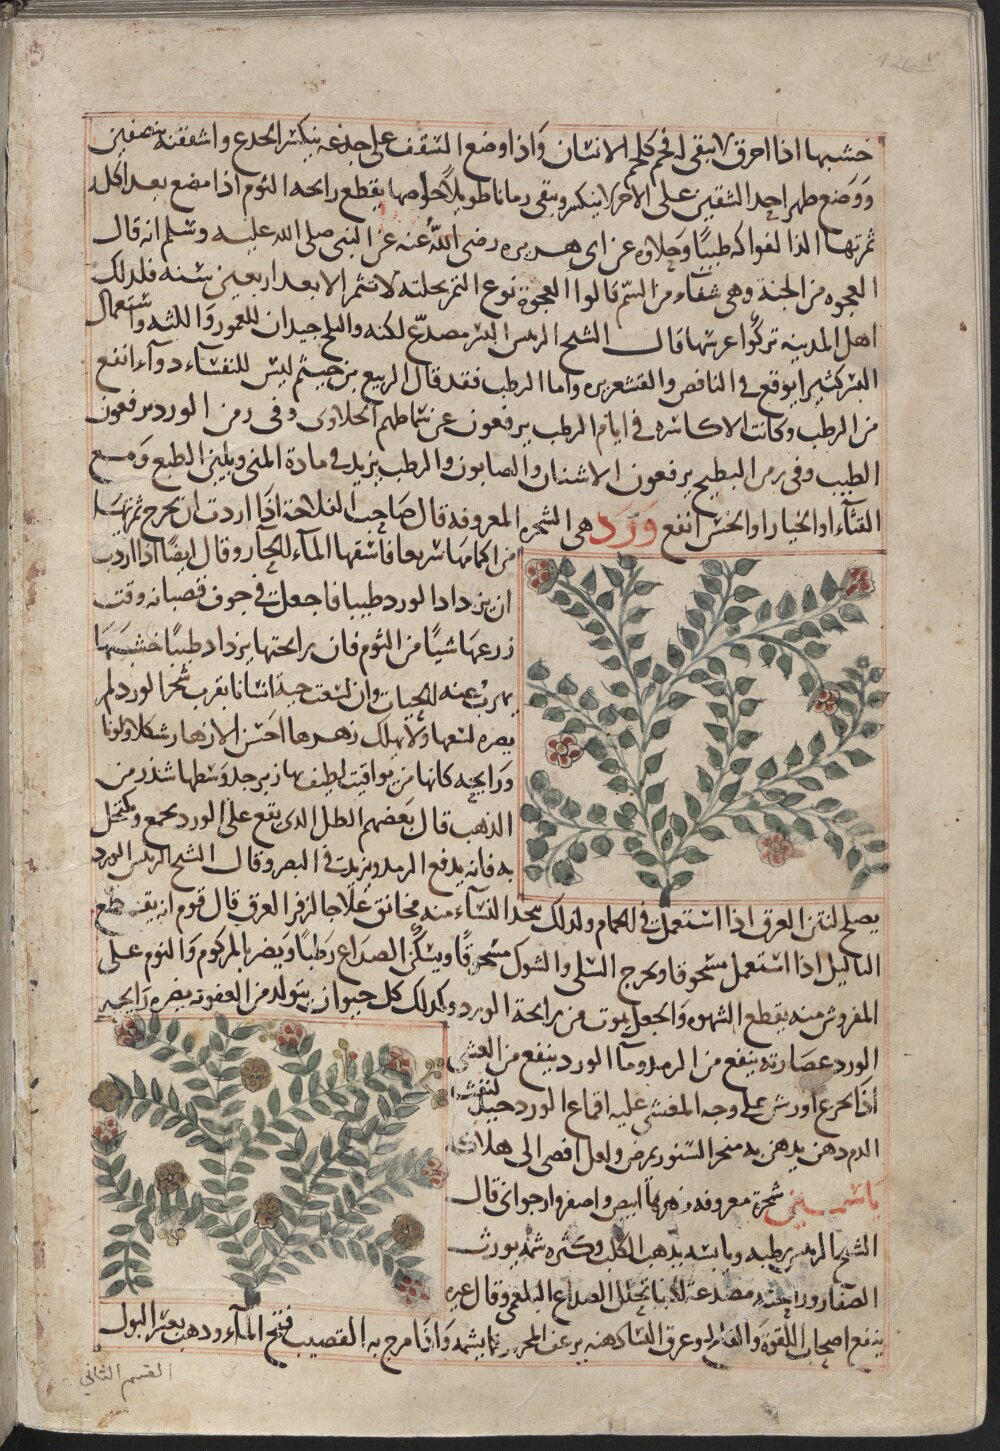 126 v
خشبها اذا احرق لا يبقى له فحم كلحم الانسان واذا وضع السقف على جذعه ينكسر الجدع واشققته نصفين
ووضع ظهر احد الشقين على الاخر لا ينكسر ويبقى زمانا طويلا خوصها يقطع رايحه الثوم اذا مضغ بعد اكله
ثمرتها الذ الفواكه طيبا وحلاوه عن ابى هريره رضى الله عنه عن النبى صلى الله عليه وسلم انه قال
العجوه من الجنة وهى شفاء من السّم قالوا العجوة نوع التمر نخلته لا تثمر الا بعد اربعين سنه فلذلك
اهل المدينه تركوا غرسها قال الشيخ الرييس البسر مصدّع لكنه والبلح جيدان للعمور واللثه واستعمال
البسر كثيرا يوقع فى النافض والقشعريره واما الرطب فقد قال الربيع بن خيثم ليس للنفساء دواء انفع
من الرطب وكانت الاكاسره فى ايام الرطب يرفعون عن سماطهم الحلاوى وفى زمن الورد يرفعون
الطيب وفى زمن البطيخ يرفعون الاشنان والصابون والرطب يزيد فى مادة المنى ويلين الطبع ومع
القثاء او الخيار او الخس انفع وَرد هى الشجره المعروفه قال صاحب الفلاحة اذا اردت ان تخرج ثمرتها
من اكمامها سريعا فاسقها الماء الحار وقال ايضا اذا اردت
ان يزداد الورد طيبا فاجعل فى جوف قصبانه وقت
زرعها شيا من الثوم فان رايحتها يزداد طيبا خشبها
يهرب عنه الحيات وان لسعت حية انسانا بقرب شجر الورد لم
يضره لسعها ولا يهلك زهرها احسن الازهار شكلا ولونا
ورايحه كانها من يواقيت لطيف بها زبرجد وسطها شذر من
الذهب قال بعضهم الطل الذى يقع على الورد يجمع ويكتحل
به فانه يدفع الرمد ويزيد فى البصر وقال الشيخ الرييس الورد
يصلح لنتن العرق اذا استعمل فى الحمام ولذلك تتخذ النساء منه مخانق علاجا لزفر العرق قال قوم انه يقطع
الثاليل اذا استعمل مسحوقا ويخرج السلى والشوك مسحوقا ويسكن الصداع رطبا ويضر بالمزكوم والنوم على
المفروش منه يقطع الشهوه والجعل يموت من رايحة الورد وكذلك كل حيوان يتولد من العفونه يضره رايحة
الورد عصارته ينفع من الرمد وما الورد ينفع من الغشى
اذا تجرع او رش على وجه المغشى عليه اقماع الورد جيد لنفث
الدم دهن يدهن به منخر السنور يمرض ولعل افضى الى هلاكه
ياسمين شجرة معروفه زهرها ابيض واصفر وارجوانى قال
الشيخ الرييس رطبه ويابسه يذهب الكلف وكثرة شمه يورث
الصفار ورايحته مصدعة لكنها تحلل الصداع البلغمى وقال غيره
ينفع اصحاب اللقوة والفالج وعرق النسا دهنه يرعف المحرور كما يشمه واذا مرخ به القضيب فتح الماء وذهب بعسر البول
القسم الثانى